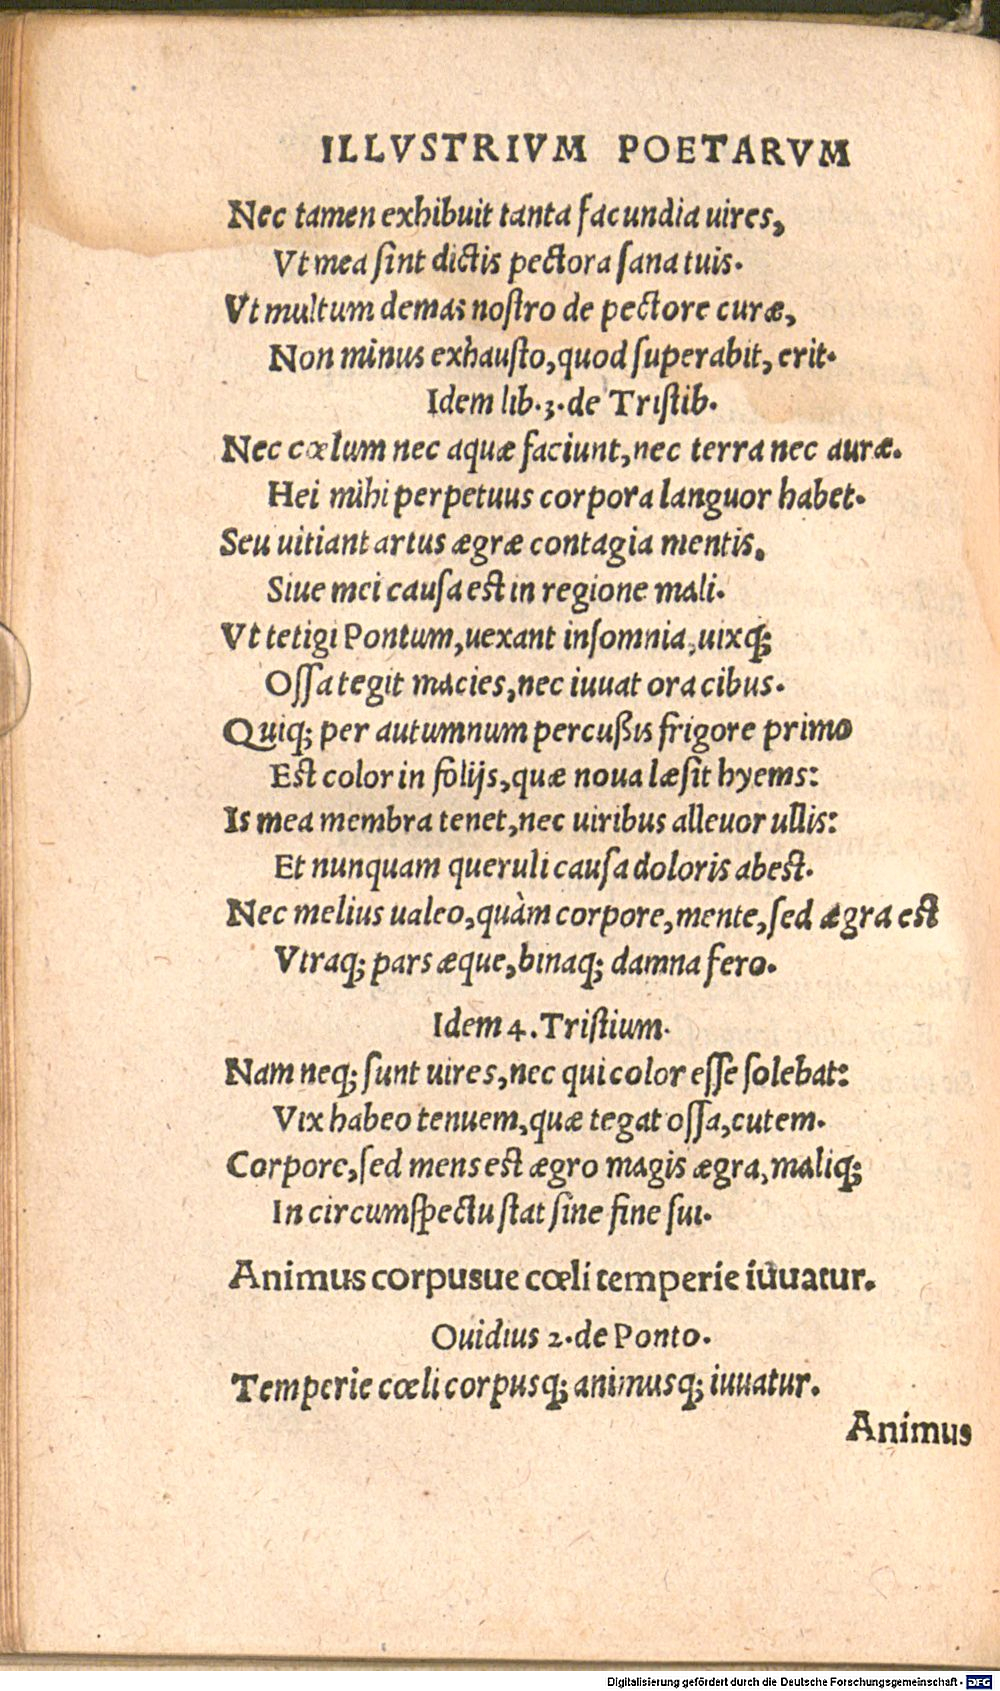 ILLVSTRIVM POETARVM
Nec tamen exhibuit tanta facundia uires,
Vt mea ſint dictis pectora ſana tuis.
Vt multum demas noſtro de pectore curæ,
Non minus exhauſto, quod ſuperabit, erit.
Idem lib. 3. de Triſtib.
Nec cœlum nec aquæ faciunt, nec terra nec auræ.
Hei mihi perpetuus corpora languor habet.
Seu uitiant artus ægræ contagia mentis.
Siue mei cauſa eſt in regione mali.
Vt tetigi Pontum, uexant inſomnia, uixq;
Oſſa tegit macies, nec iuuat ora cibus.
Quiq; per autumnum percußis frigore primo
Eſt color in folijs, quæ noua læſit hyems:
Is mea membra tenet, nec uiribus alleuor ullis:
Et nunquam queruli cauſa doloris abeſt.
Nec melius ualeo, quàm corpore, mente, ſed ægra eſt
Vtraq; pars æque, binaq; damna fero.
Idem 4. Triſtium.
Nam neq; ſunt uires, nec qui color eſſe ſolebat:
Vix habeo tenuem, quæ tegat oſſa, cutem.
Corpore, ſed mens eſt ægro magis ægra, maliq;
In circumſpectu ſtat ſine fine ſui.
Animus corpusue cœli temperie iuuatur.
Ouidius 2. de Ponto.
Temperie cœli corpusq; animusq; iuuatur.
Animus
Digitalisierung gefördert durch die Deutsche Forschungsgemeinschaft - DFG